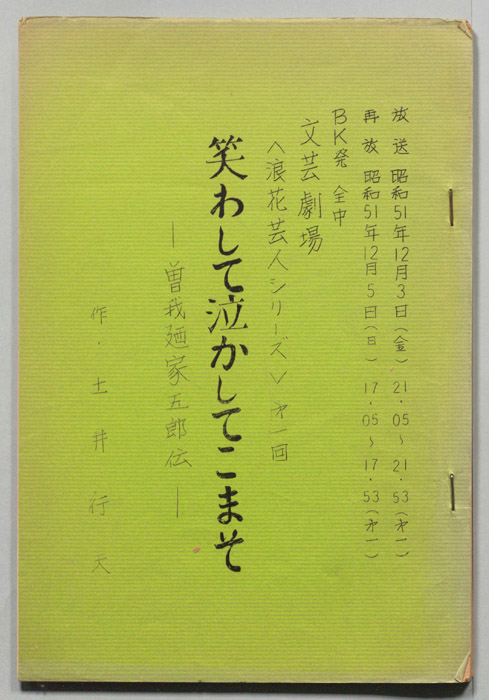 放送 昭和51年12月3日(金) 21.05~21.53(才一)
再放 昭和51年12月5日(日) 17.05~17.53(才一)
BK発 全中
文芸劇場
<浪花芸人シリーズ>才一回
笑わして泣かしてこまそ
―曽我廼家五郎伝―
作・土井行夫